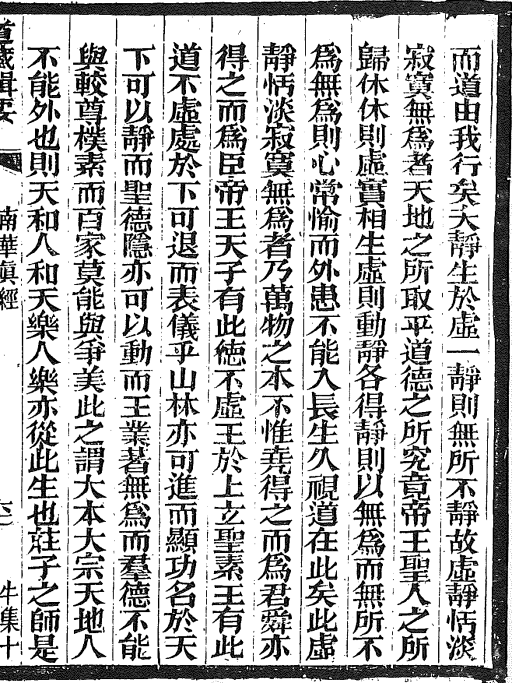 而道由我行矣夫靜生於虛一靜則無所不靜故虛靜恬淡
寂寞無爲者天地之所取平道德之所究竟帝王聖人之所
歸休休則虛實相生虛則動靜各得靜則以無爲而無所不
爲無爲則心常愉而外患不能入長生久視道在此矣此虛
靜恬淡寂寞無爲者乃萬物之本不惟堯得之而爲君舜亦
得之而爲臣帝王天子有此德不虛王於上立聖素王有此
道不虛處於下可退而表儀乎山林亦可進而顯功名於天
下可以靜而聖德隱亦可以動而王業著無爲而羣德不能
與較尊樸素而百家莫能與爭美此之謂大本大宗天地人
不能外也則天和人和天樂人樂亦從此生也莊子之師是
道藏輯要
南華眞經
牛集十